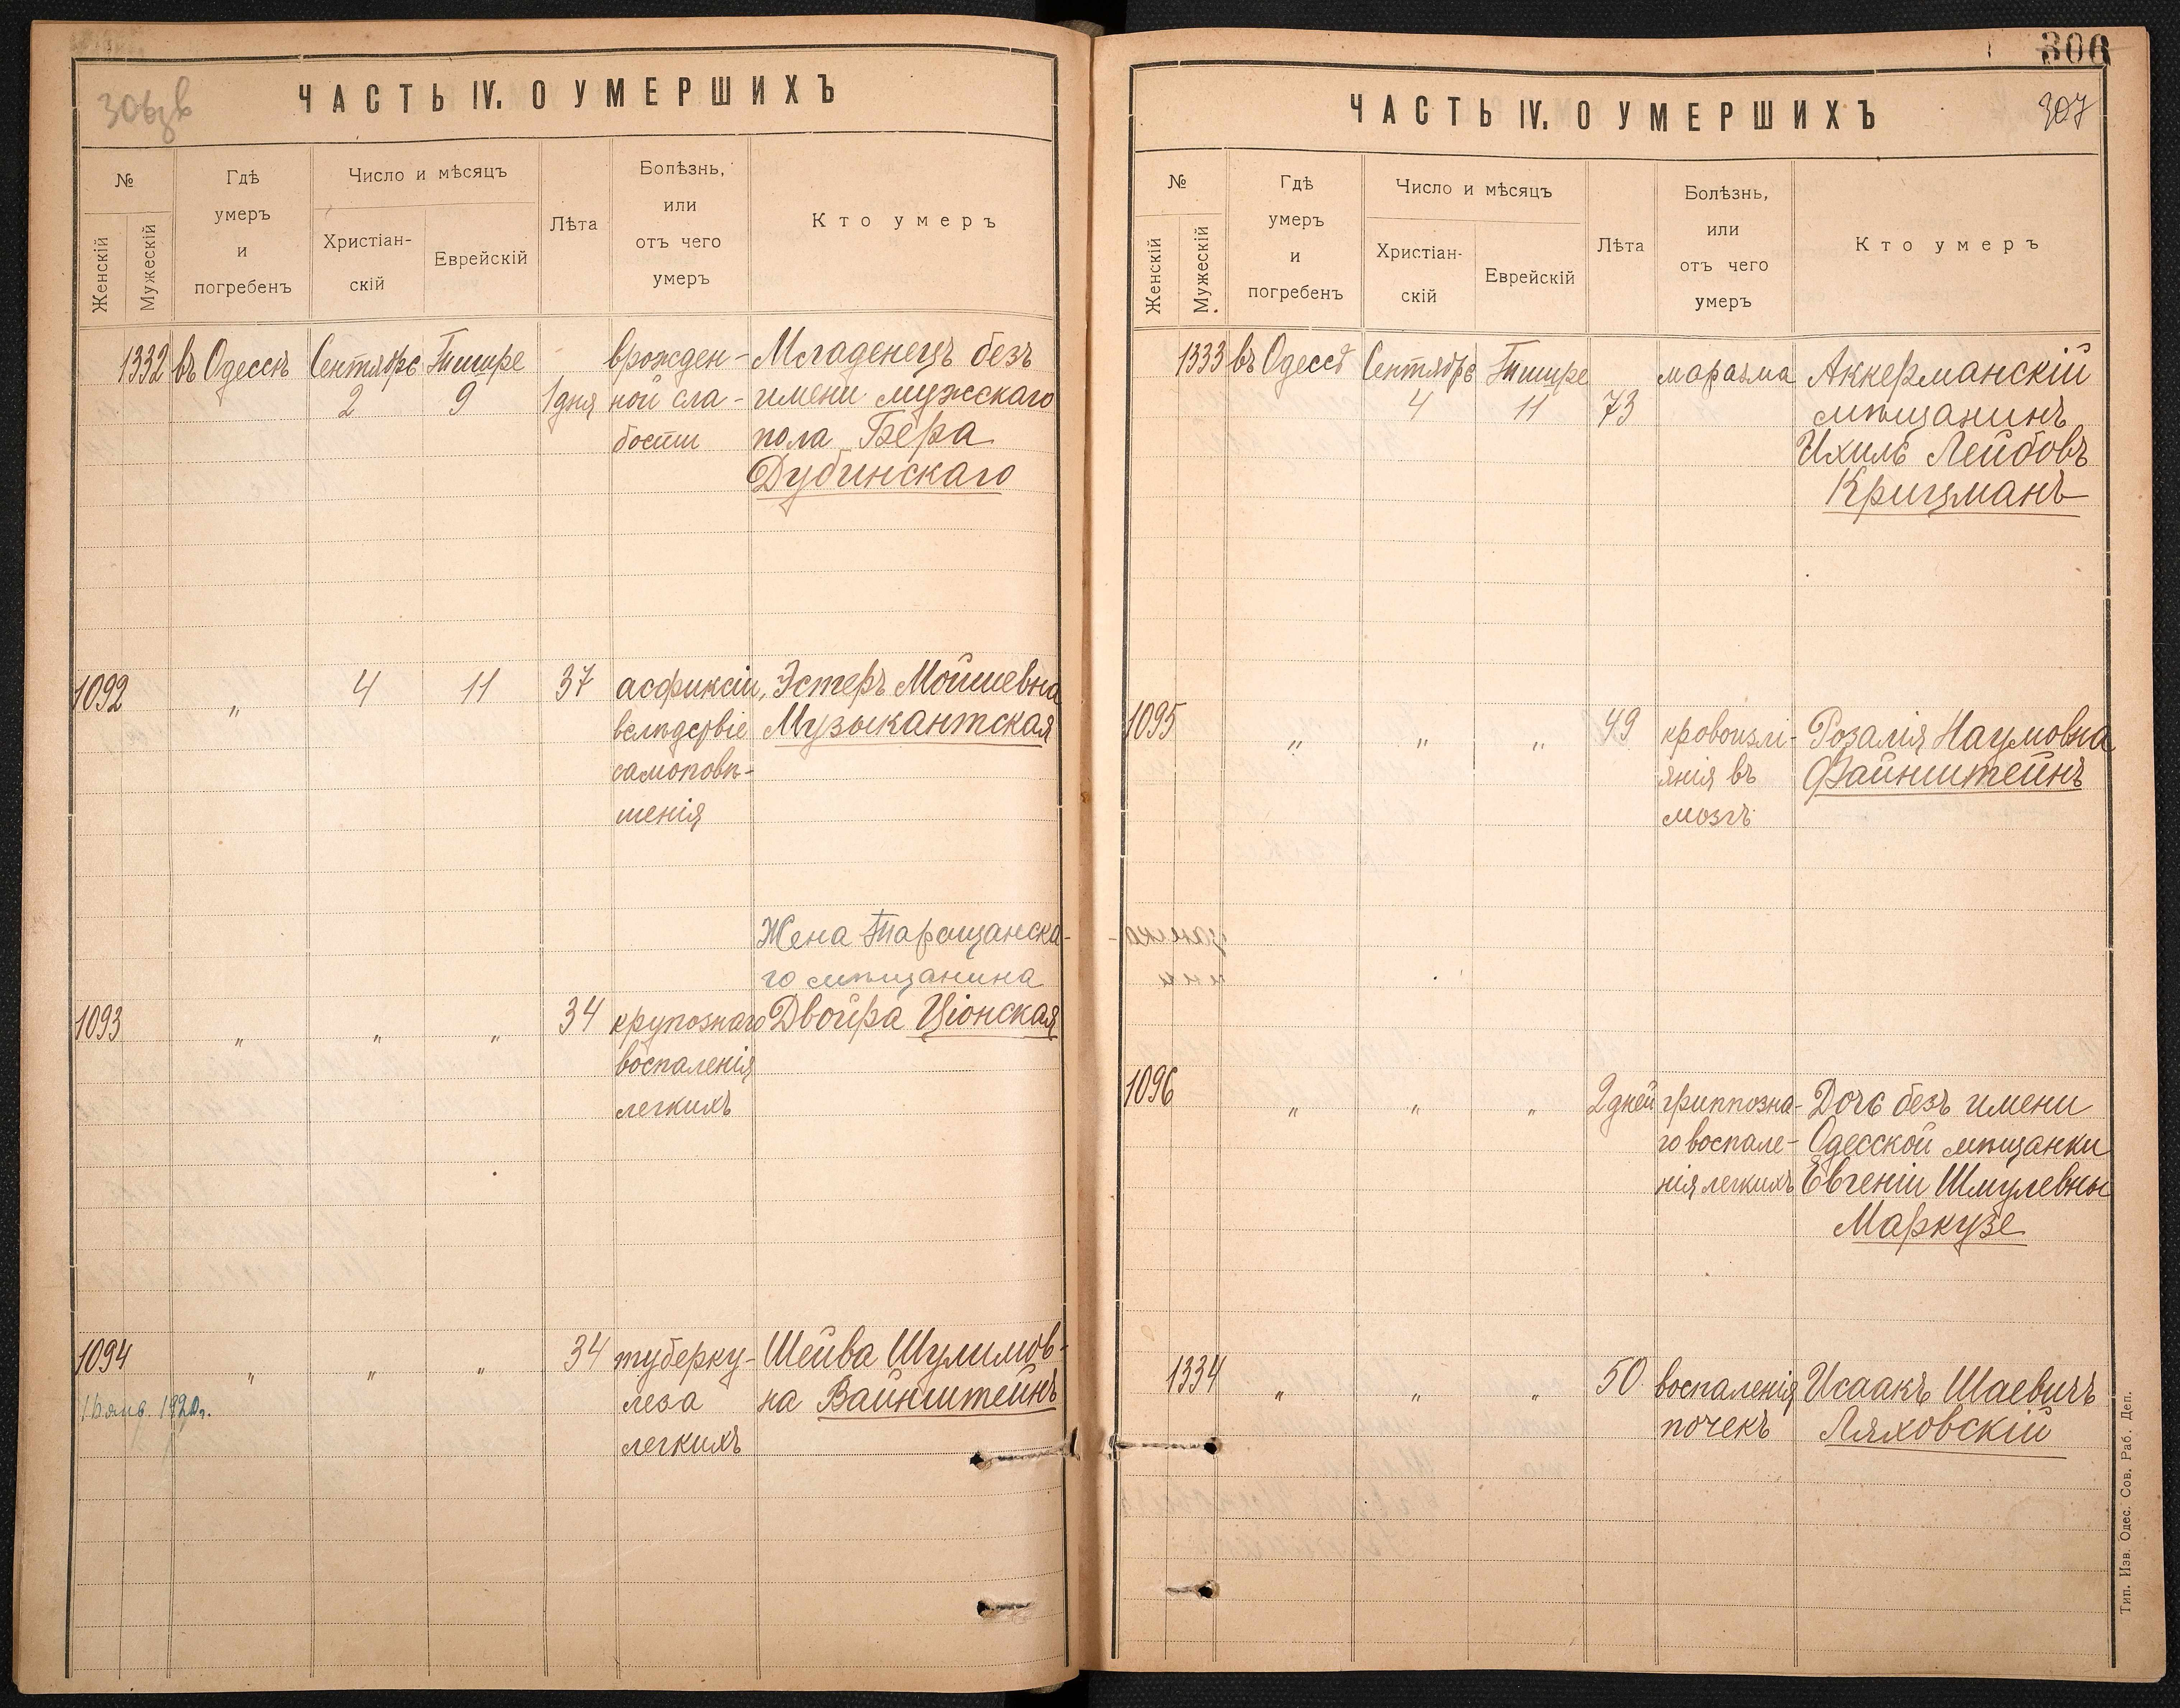 306зв
ЧАСТЬ IV. О УМЕРШИХЪ
№
Женскій
Мужескій
Гдѣ
умеръ
и
погребенъ
Число и мѣсяцъ
Христіан-
скій
Еврейскій
Лѣта
Болѣзнь,
или
отъ чего
умеръ
Кто умеръ
1332 въ Одессѣ Сентябрь Тишре врожден- Младенецъ безъ
2 9 1 дня ной сла- имени мужскаго
бости пола Бера
Дубинскаго
1092 " 4 11 37 асфиксіи, Эстеръ Мойшевна
вслѣдствіе Музыкантская
самоповѣ-
шенія
Жена Таращанска-
го мѣщанина
1093 " " " 34 крупознаго Двойра Ціонская
воспаленія
легкихъ
1094 " " " 34 туберку- Шейва Шулимов-
янв. 1920г. леза на Вайнштейнъ
легкихъ
306
307
ЧАСТЬ IV. О УМЕРШИХЪ
№
Женскій
Мужескій
Гдѣ
умеръ
и
погребенъ
Число и мѣсяцъ
Христіан-
скій
Еврейскій
Лѣта
Болѣзнь,
или
отъ чего
умеръ
Кто умеръ
1333 въ Одессѣ Сентябрь Тишре маразма Аккерманскій
4 11 73 мѣщанинъ
Ихиль Лейбовъ
Крицманъ
1095 " " " 49 кровоизлі- Розалія Наумовна
янія въ Файнштейнъ
мозгъ
1096 " " " 2 дней гриппозна- Дочь безъ имени
го воспале- Одесской мѣщанки
нія легкихъ Евгеніи Шмулевны
Маркузе
1334 " " " 50 воспаленія Исаакъ Шаевичъ
почекъ Ляховскій
Тип. Изв. Одес. Сов. Раб. Деп.